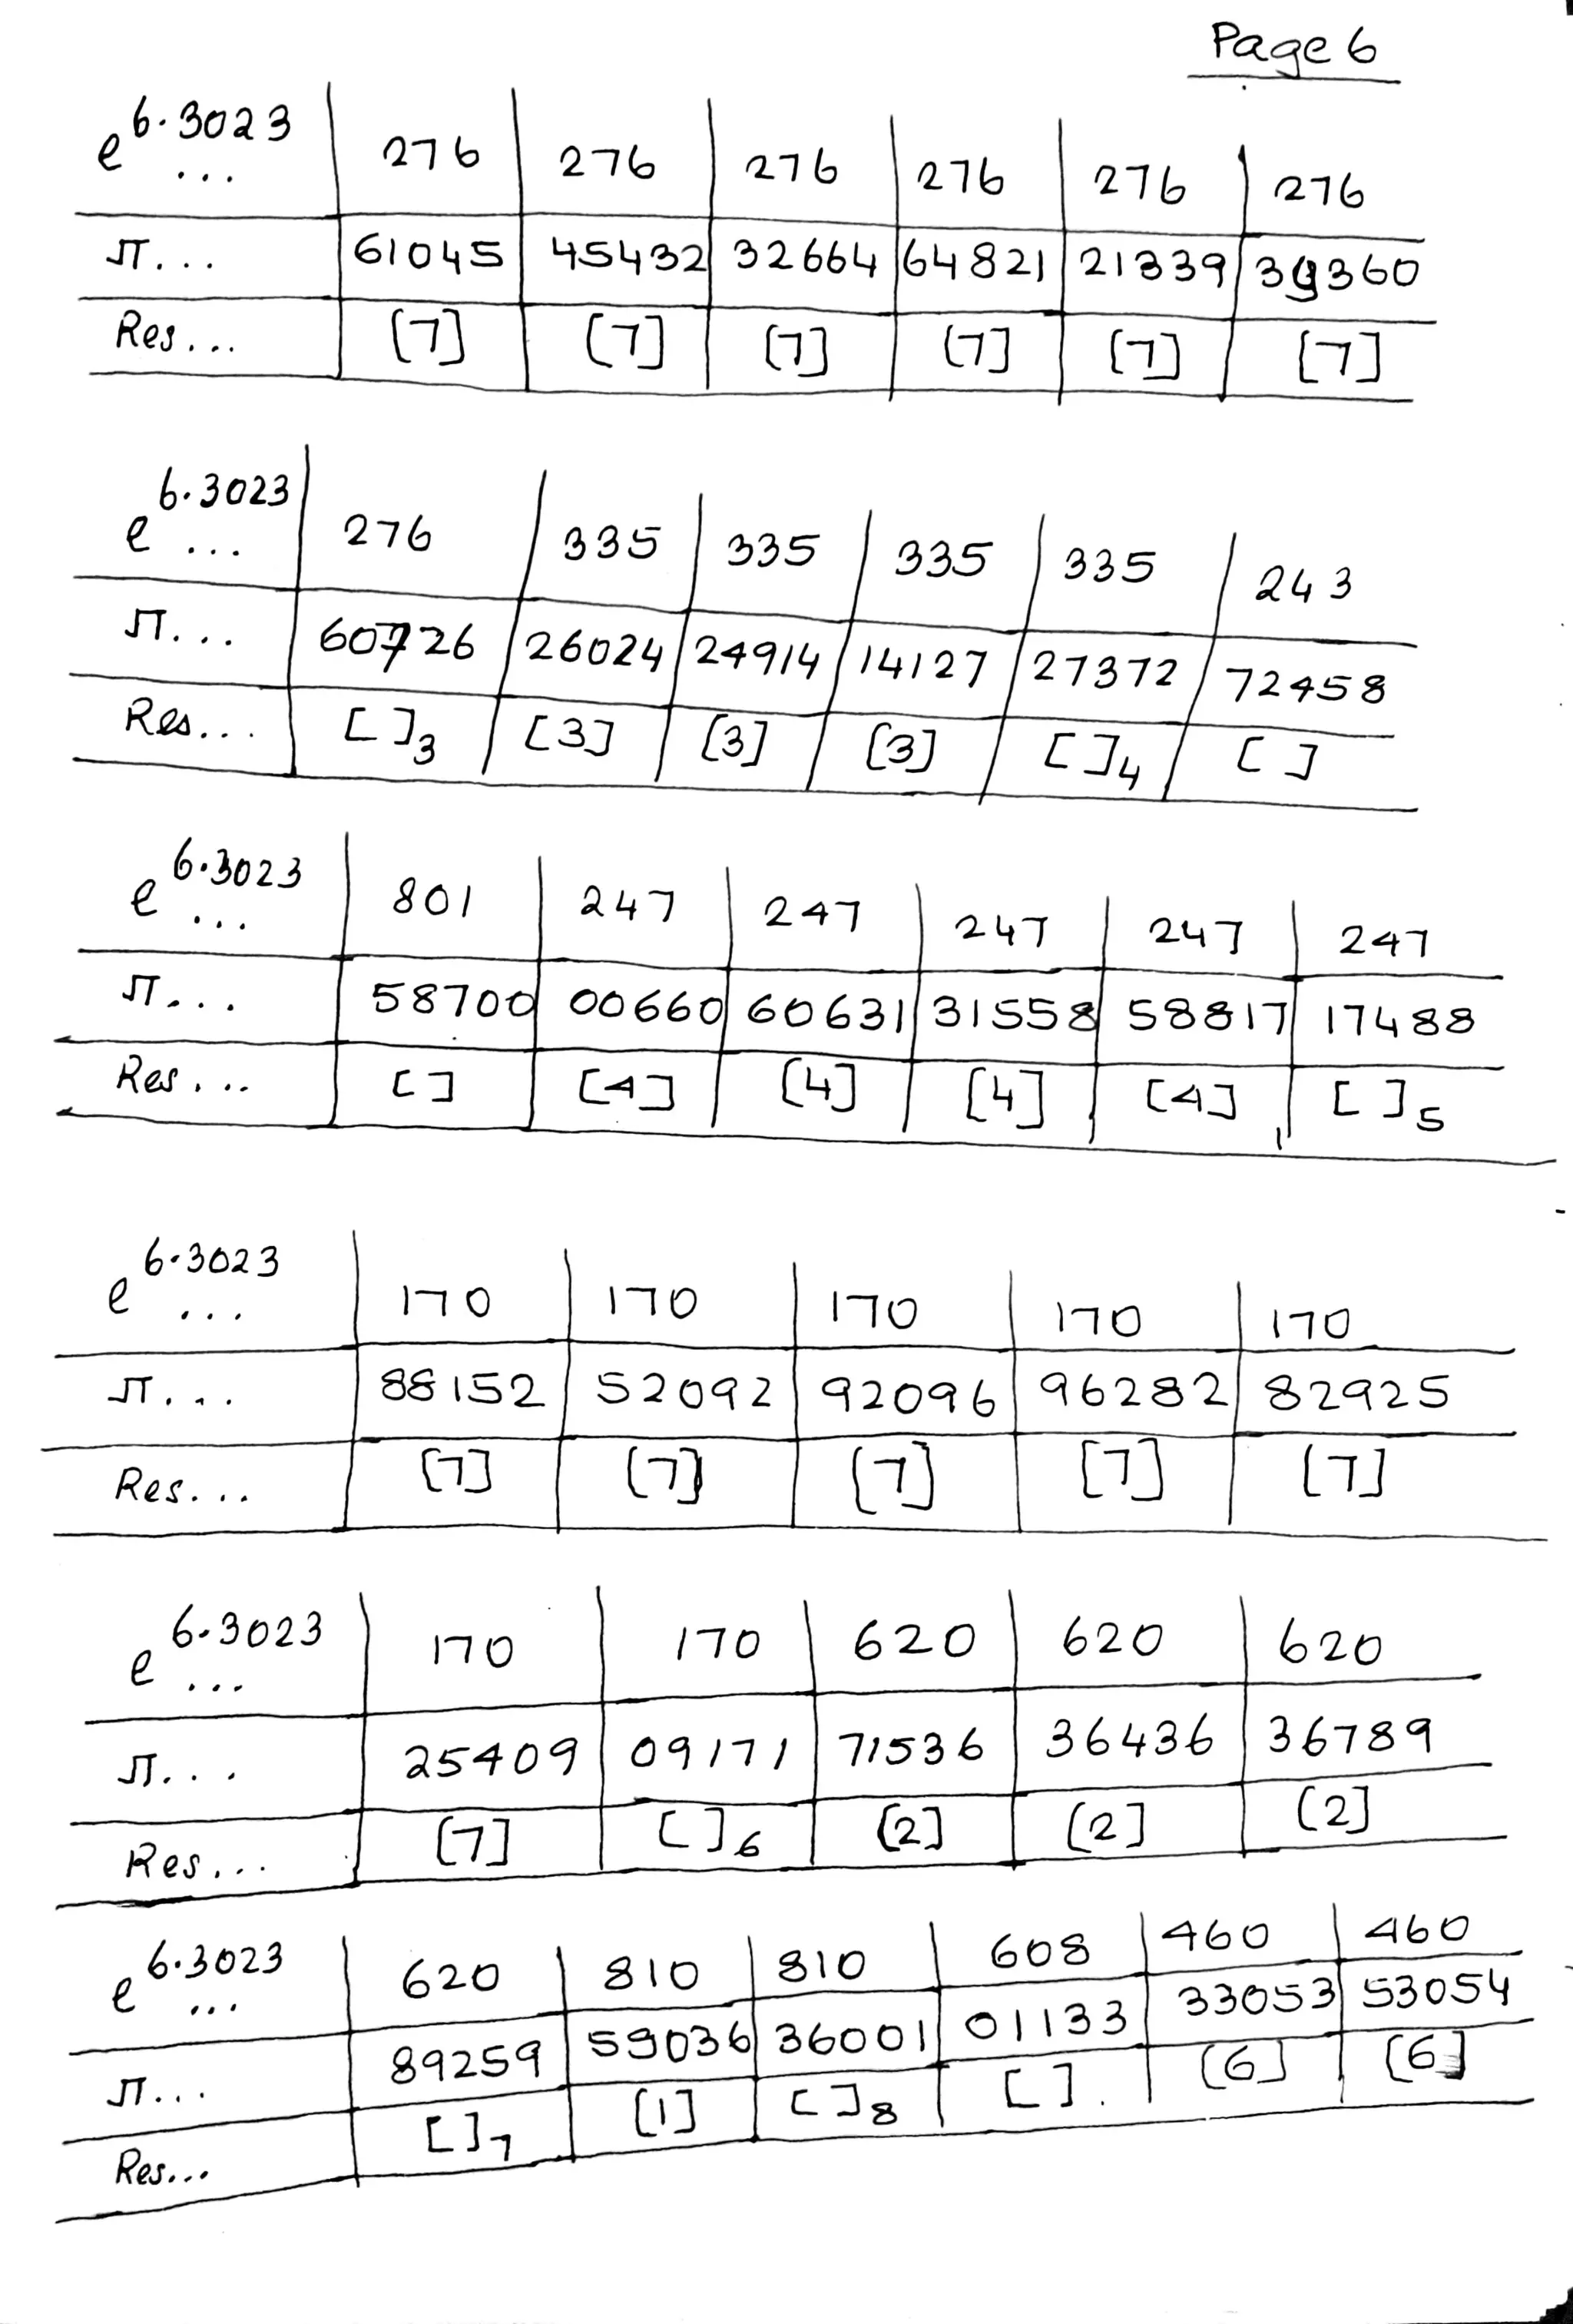 Page 6
e^6.3023 ... 276 276 276 276 276 276
π... 61045 45432 32664 64821 21339 39360
Res... [7] [7] [7] [7] [7] [7]
e^6.3023 ... 276 335 335 335 335 243
π... 60726 26024 24914 14127 27372 72458
Res... [ ]3 [3] [3] [3] [ ]4 [ ]
e^6.3023 ... 801 247 247 247 247 247
π... 58700 00660 60631 31558 58817 17488
Res... [ ] [4] [4] [4] [4] [ ]5
e^6.3023 ... 170 170 170 170 170
π... 88152 52092 92096 96282 82925
Res... [7] [7] [7] [7] [7]
e^6.3023 ... 170 170 620 620 620
π... 25409 09171 71536 36436 36789
Res... [7] [ ]6 [2] [2] [2]
e^6.3023 ... 620 810 810 608 460 460
π... 89259 59036 36001 01133 33053 53054
Res... [ ]7 [1] [ ]8 [ ]. [6] [6]